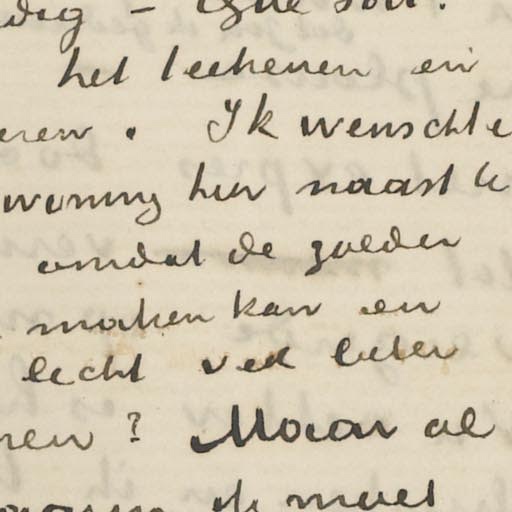 dig –
het teekenen en
eren. Ik wenschte
woning hier naast te
omdat de zolder
maken kan en
lecht veel beter
nen? Maar al
ik moet